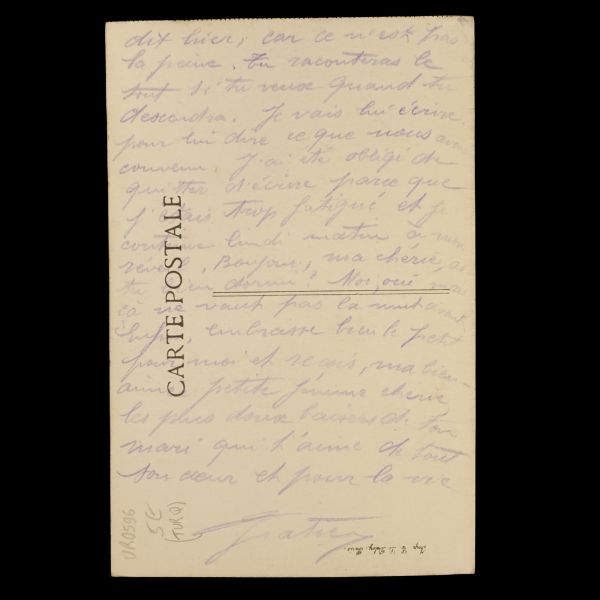 dit hier, car ce n'est pas
la peine. Tu raconteras le
tout si tu veux quand tu
descendra. Je vais lui écrire
pour lui dire ce que nous avons
convenu. J'ai été obligé de
quitter d'écrire parce que
j'étais trop fatigué et je
continue lundi matin à mon
réveil. Bonjour, ma chérie, as
tu bien dormi? Moi, oui mais
çà ne vaut pas la nuit avant
embrasse bien le petit
pour moi et reçois, ma bien-
aimée petite femme chérie
les plus doux baisers de ton
mari qui t'aime de tout
son cœur et pour la vie
CARTE POSTALE
UR0596
5€
(TURQ)
Imp. Paris.